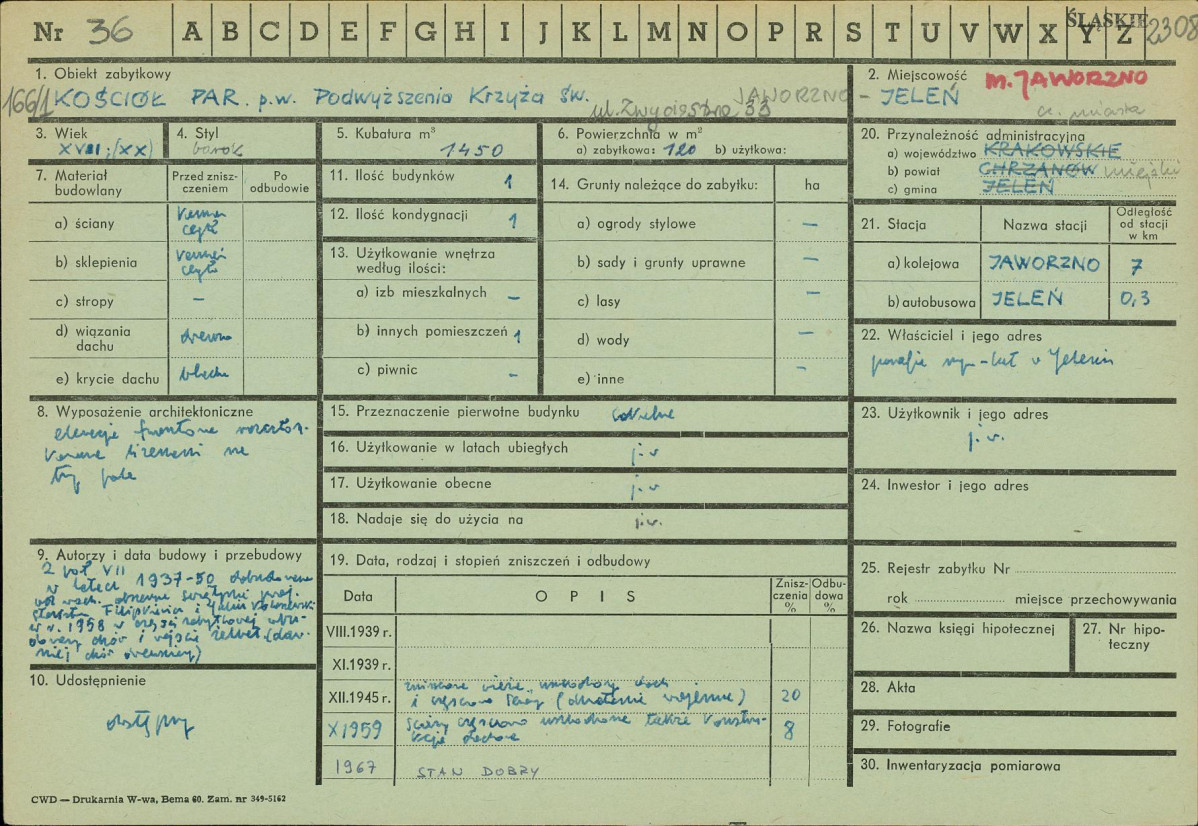 Nr 36 A B C D E F G H I J K L M N O P R S T U V W X Y Z ŚLĄSKIE 2308
1. Obiekt zabytkowy
166/1 KOŚCIÓŁ PAR. p.w. Podwyższenia Krzyża Św.
ul. Zwycięstwa 33
2. Miejscowość m. JAWORZNO
JAWORZNO - JELEŃ
cz. miasta
3. Wiek
XVIII; (XX)
4. Styl
barok
5. Kubatura m³
1450
6. Powierzchnia w m²
a) zabytkowa: 120 b) użytkowa:
20. Przynależność administracyjna
a) województwo KRAKOWSKIE
b) powiat CHRZANÓW miejski
c) gmina JELEŃ
7. Materiał budowlany
Przed znisz-
czeniem
Po
odbudowie
a) ściany kamień
cegła
b) sklepienia kamień
cegła
c) stropy –
d) wiązania
dachu drewno
e) krycie dachu blacha
11. Ilość budynków 1
12. Ilość kondygnacji 1
13. Użytkowanie wnętrza
według ilości:
a) izb mieszkalnych –
b) innych pomieszczeń 1
c) piwnic –
14. Grunty należące do zabytku: ha
a) ogrody stylowe –
b) sady i grunty uprawne –
c) lasy –
d) wody –
e) inne –
21. Stacja Nazwa stacji Odległość
od stacji
w km
a) kolejowa JAWORZNO 7
b) autobusowa JELEŃ 0,3
22. Właściciel i jego adres
parafia rzym-kat w Jeleniu
8. Wyposażenie architektoniczne
elewacje frontowe
na
trzy pola
15. Przeznaczenie pierwotne budynku sakralne
16. Użytkowanie w latach ubiegłych j.w
17. Użytkowanie obecne j.w
18. Nadaje się do użycia na j.w.
23. Użytkownik i jego adres
j.w.
24. Inwestor i jego adres
–
9. Autorzy i data budowy i przebudowy
2 poł VII
w latach 1937-50 dobudowane
od wsch. obecne świątyni proj.
Filipkiewicza i
w r. 1958 w części zabytkowej
chór i wejście żelbet (daw-
niej chór drewniany)
10. Udostępnienie
dostępny
19. Data, rodzaj i stopień zniszczeń i odbudowy
Data OPIS Znisz-
czenia
% Odbu-
dowa
%
VIII.1939 r.
XI.1939 r.
XII.1945 r. zniszczone wieże, uszkodzony dach
i częściowo (działania wojenne) 20
X 1959 ściany częściowo uszkodzone także konstru-
kcje dachowe 8
1967 STAN DOBRY
25. Rejestr zabytku Nr
rok miejsce przechowywania
26. Nazwa księgi hipotecznej
27. Nr hipo-
teczny
28. Akta
29. Fotografie
30. Inwentaryzacja pomiarowa
CWD — Drukarnia W-wa, Bema 60. Zam. nr 349-5162